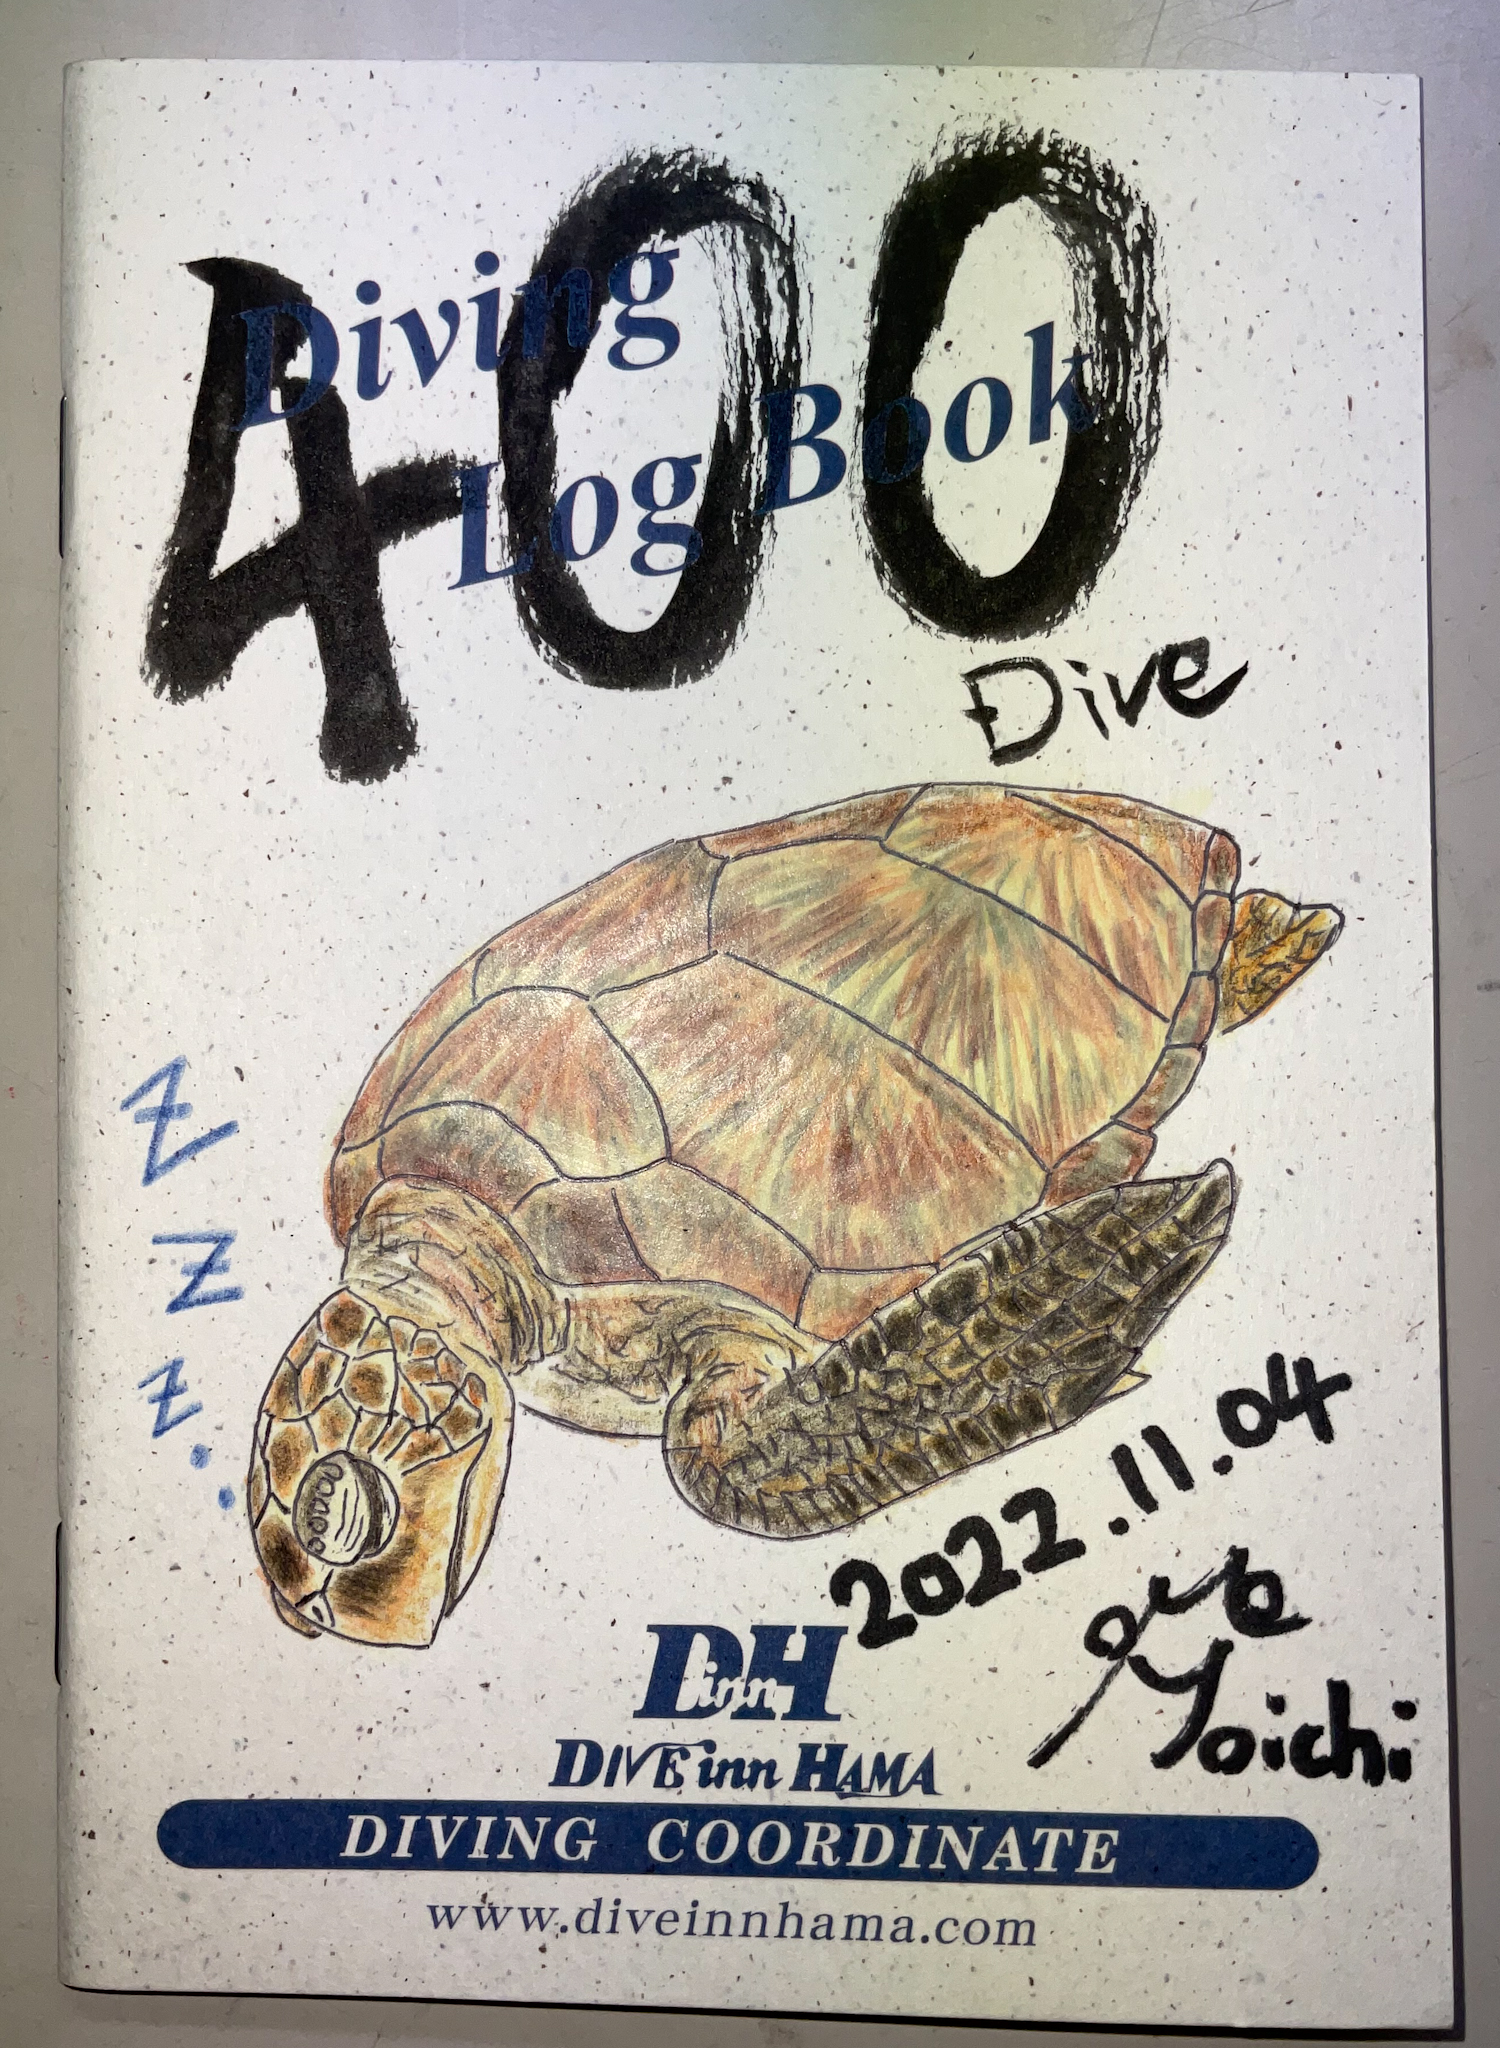 400
Diving
Log Book
Dive
Z
Z
Z..
2022.11.04
Yoichi
DinnH
DIVE inn HAMA
DIVING COORDINATE
www.diveinnhama.com